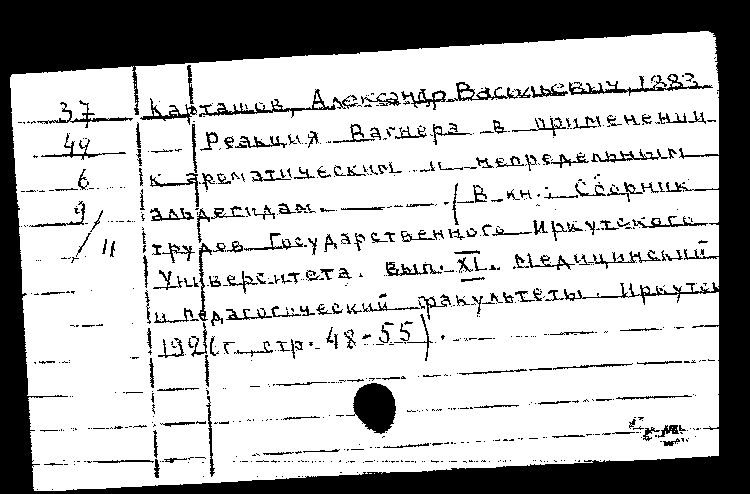 37 Карташов, Александр Васильевич, 1883
49 Реакция Вагнера в применении
6 к ароматическим и непредельным
9/11 альдегидам. (В кн.: Сборник
трудов Государственного Иркутского
Университета. Вып. XI. Медицинский
и педагогический факультеты. Иркутск
стр. 48-55).